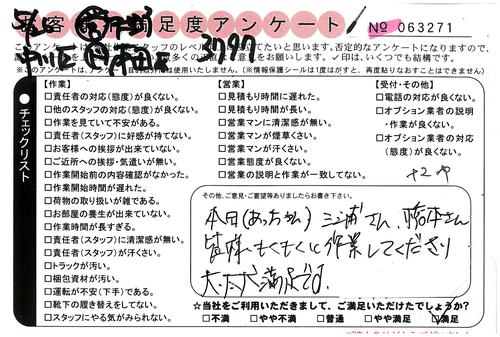 お客様満足度アンケート
№ 063271
3797
※このアンケートは、アンケート目的以外は使用いたしません。（※情報保護シールは1度がすと、再度貼りなおすことはできません）
チェックリスト
【作業】
□責任者の対応(態度)が良くない。
□他のスタッフの対応(態度)が良くない。
□作業を見ていて不安がある。
□責任者(スタッフ)に好感が持てない。
□お客様への挨拶が出来ていない。
□ご近所への挨拶・気遣いが無い。
□作業開始前の内容確認がなかった。
□作業開始時間が遅れた。
□荷物の取り扱いが雑である。
□お部屋の養生が出来ていない。
□作業時間が長すぎる。
□責任者(スタッフ)に清潔感が無い。
□責任者(スタッフ)が汗くさい。
□トラックが汚い。
□梱包資材が汚い。
□運転が不安(下手)である。
□靴下の履き替えをしてない。
□スタッフにやる気がみられない。
【営業】
□見積もり時間に遅れた。
□見積もり時間が長い。
□営業マンに清潔感が無い。
□営業マンが煙草くさい。
□営業マンが汗くさい。
□営業態度が良くない。
□営業の説明と作業が一致してない。
【受付・その他】
□電話の対応が良くない。
□オプション業者の説明
・作業が良くない。
□オプション業者の対応
(態度)が良くない。
その他、ご意見・ご要望等ありましたらお書き下さい。
本日(あっちゃん)三浦さん、橋本さん
皆様もくもくと作業してくださり
大大大満足です。
☆当社をご利用いただきまして、ご満足いただけたでしょうか？
□不満 □やや不満 □普通 □やや満足 □満足